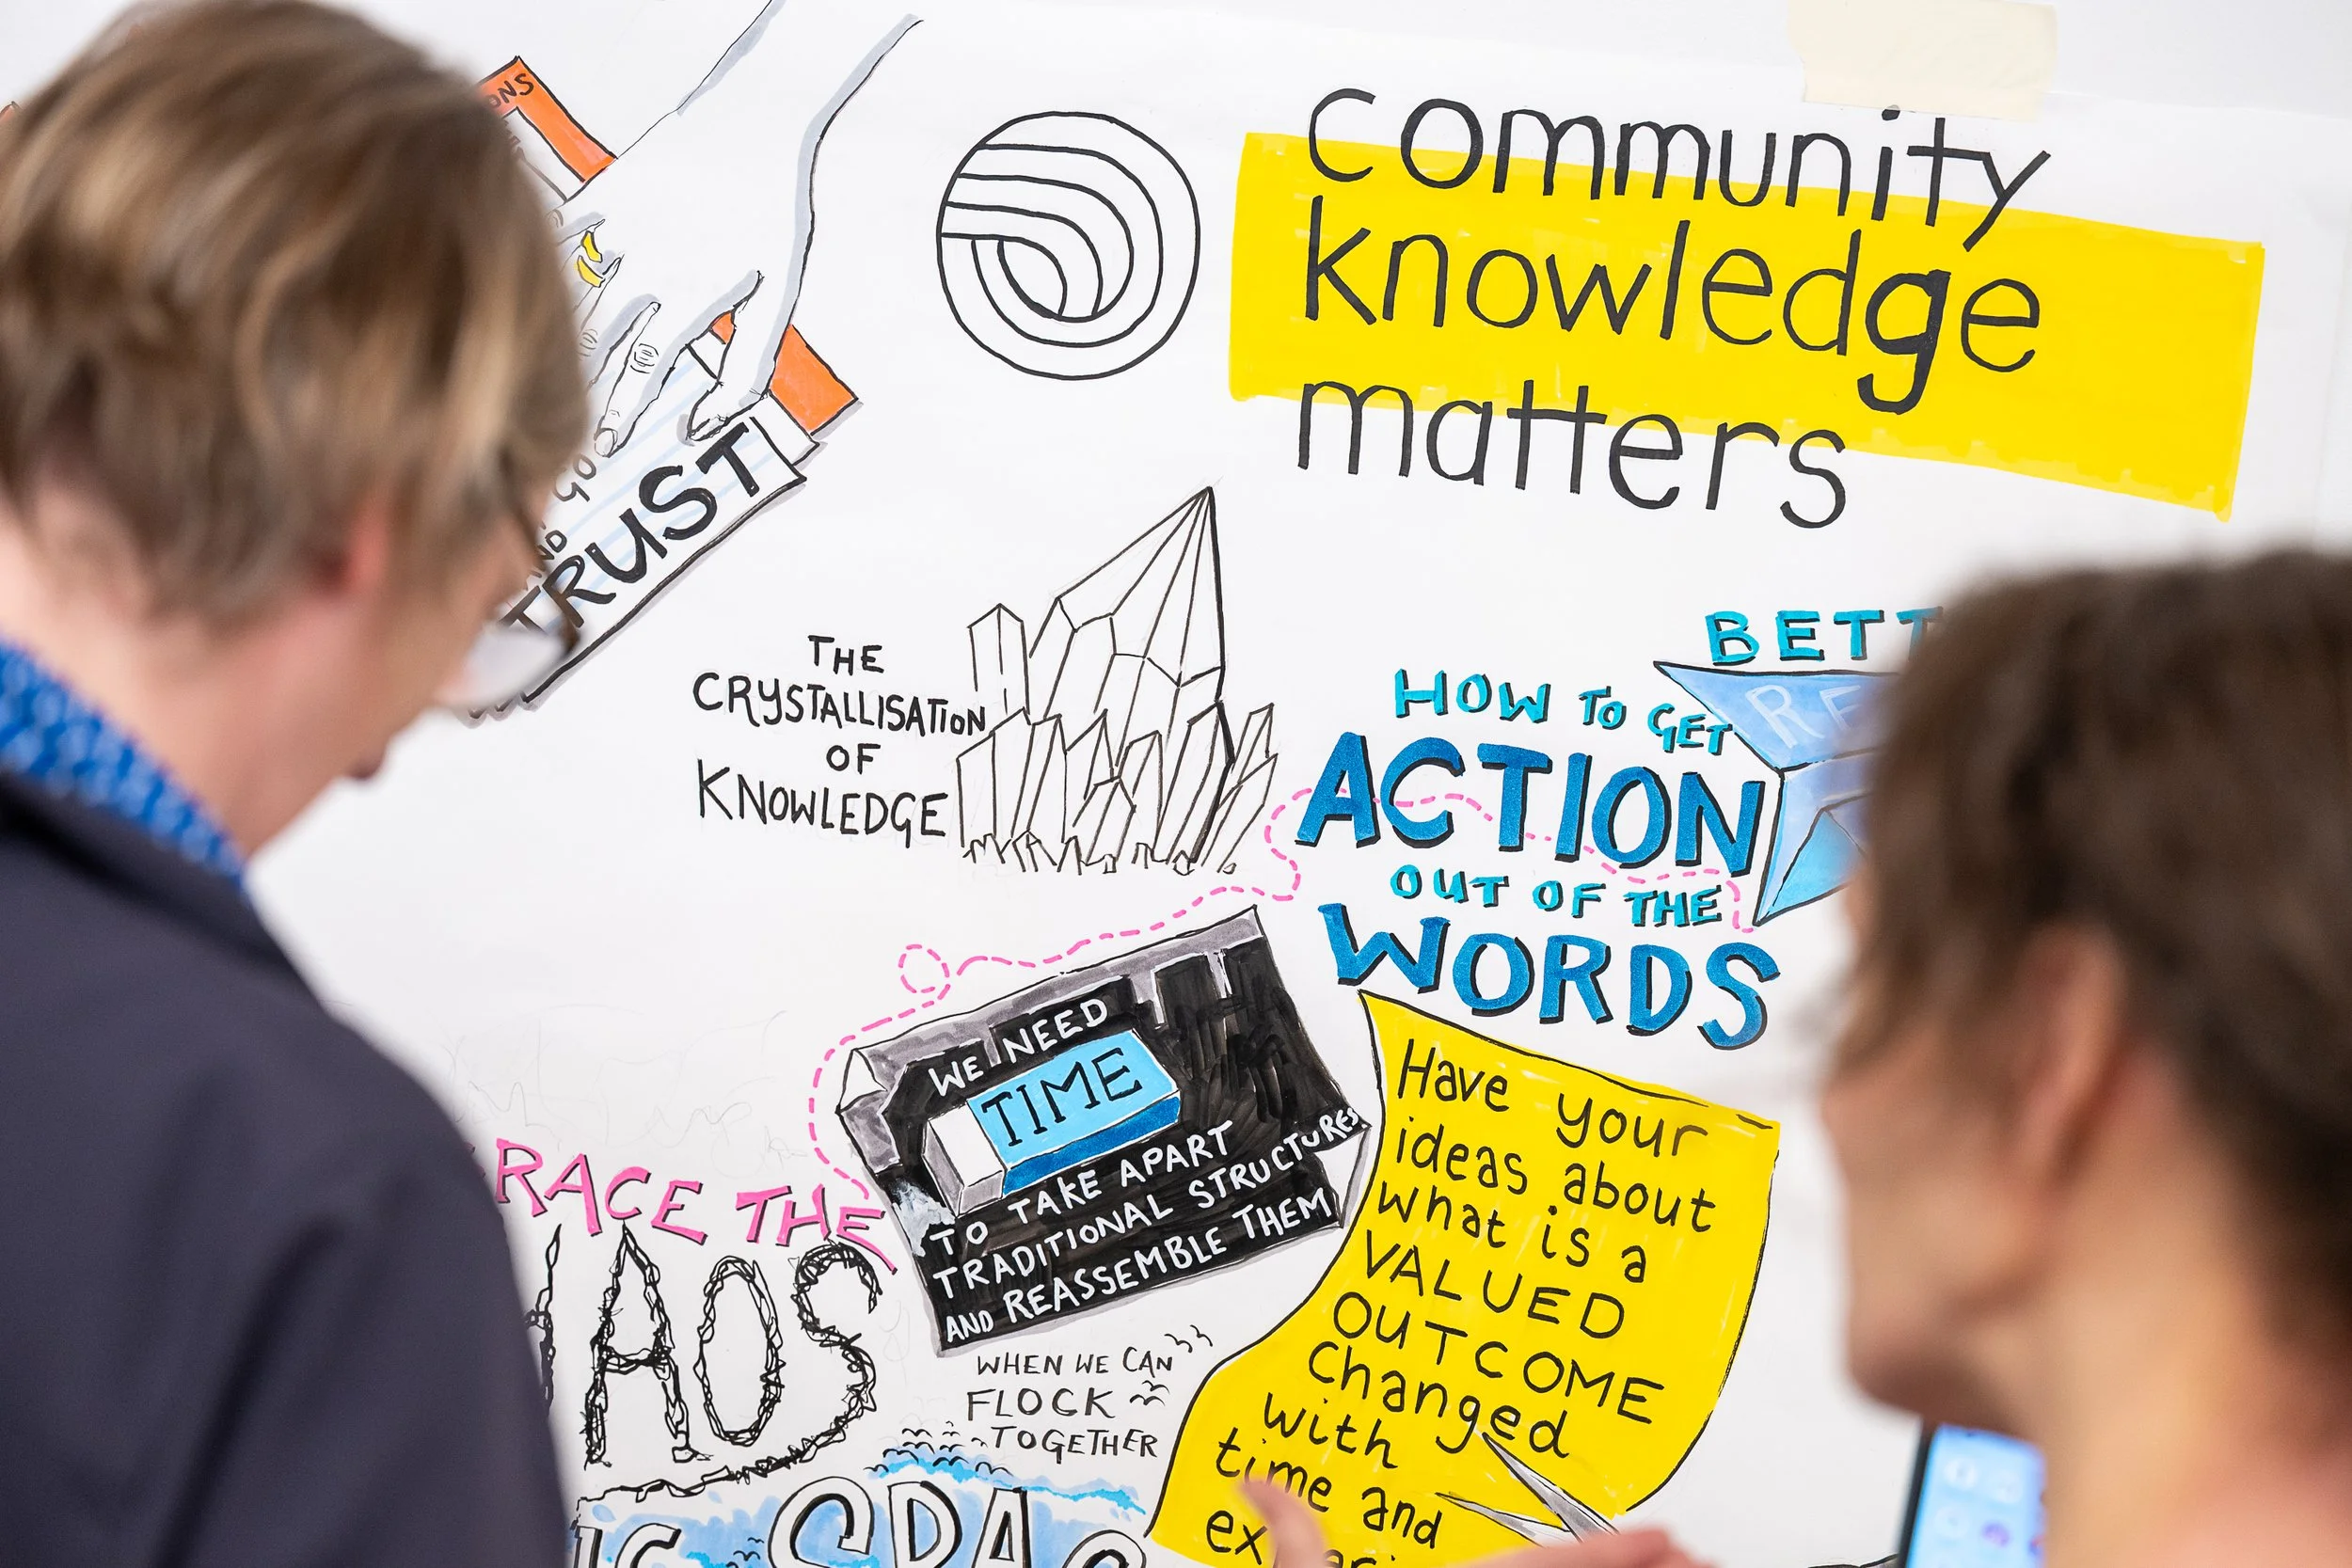 community
knowledge
matters
TRUST
THE
CRYSTALLISATION
OF
KNOWLEDGE
HOW TO GET
ACTION
OUT OF THE
WORDS
WE NEED
TIME
TO TAKE APART
TRADITIONAL STRUCTURES
AND REASSEMBLE THEM
THE
WHEN WE CAN
FLOCK
TOGETHER
Have your
ideas about
what is a
VALUED
OUTCOME
changed
with
time and